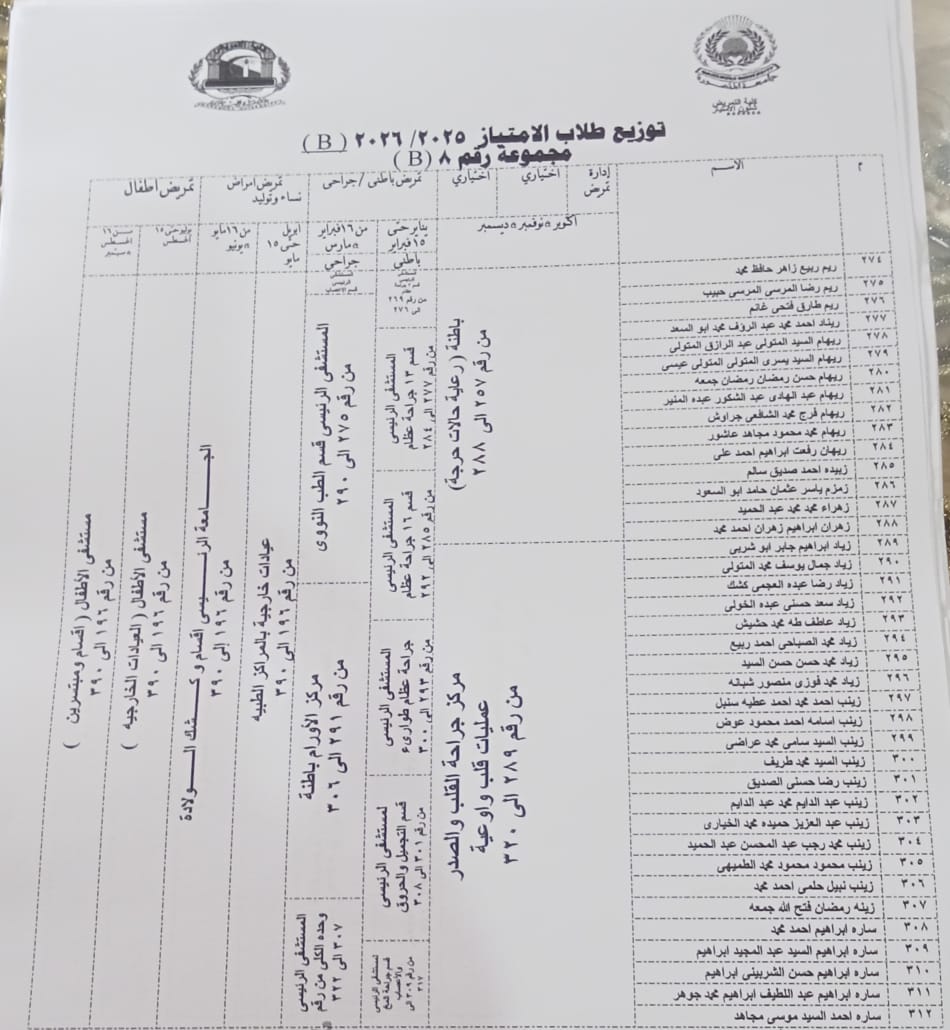 كلية التمريض
توزيع طلاب الامتياز ٢٠٢٥/ ٢٠٢٦ ( B )
مجموعة رقم ٨ ( B )
م
الاسم
إدارة تمريض
اختياري
اختياري
أكتوبر n نوفمبر n ديسمبر
تمريض باطنى / جراحى
يناير حتى ١٥ فبراير
باطني
من ١٦ فبراير n مارس
جراحي
تمريض امراض نساء وتوليد
ابريل حتى ١٥ مايو
من ١٦ مايو n يونيو
تمريض اطفال
يوليو حتى ١٥ أغسطس
من ١٦ اغسطس n سبتمبر
٢٧٤ ريم ربيع زاهر حافظ محمد
٢٧٥ ريم رضا المرسى المرسى حبيب
٢٧٦ ريم طارق فتحى غانم
٢٧٧ ريناد احمد محمد عبد الرؤف محمد ابو السعد
٢٧٨ ريهام السيد المتولى عبد الرازق المتولى
٢٧٩ ريهام السيد يسرى المتولى المتولى عيسى
٢٨٠ ريهام حسن رمضان رمضان جمعه
٢٨١ ريهام عبد الهادى عبد الشكور عبده المنير
٢٨٢ ريهام فرج محمد الشافعى جراوش
٢٨٣ ريهام محمد محمود مجاهد عاشور
٢٨٤ ريهان رفعت ابراهيم احمد على
٢٨٥ زبيده احمد صديق سالم
٢٨٦ زمزم ياسر عثمان حامد ابو السعود
٢٨٧ زهراء محمد محمد عبد الحميد
٢٨٨ زهران ابراهيم زهران احمد محمد
٢٨٩ زياد ابراهيم جابر ابو شربى
٢٩٠ زياد جمال يوسف محمد المتولى
٢٩١ زياد رضا عبده العجمى كشك
٢٩٢ زياد سعد حسنى عبده الخولى
٢٩٣ زياد عاطف طه محمد حشيش
٢٩٤ زياد محمد الصباحى احمد ربيع
٢٩٥ زياد محمد حسن حسن السيد
٢٩٦ زياد محمد فوزى منصور شبانه
٢٩٧ زينب احمد احمد عطيه سنبل
٢٩٨ زينب اسامه احمد محمود عوض
٢٩٩ زينب السيد سامى محمد عراضى
٣٠٠ زينب السيد محمد طريف
٣٠١ زينب رضا حسنى الصديق
٣٠٢ زينب عبد الدايم محمد عبد الدايم
٣٠٣ زينب عبد العزيز حميده محمد الخيارى
٣٠٤ زينب محمد رجب عبد المحسن عبد الحميد
٣٠٥ زينب محمود محمود محمد الطميهى
٣٠٦ زينب نبيل حلمى احمد محمد
٣٠٧ زينه رمضان فتح الله جمعه
٣٠٨ ساره ابراهيم احمد محمد
٣٠٩ ساره ابراهيم السيد عبد المجيد ابراهيم
٣١٠ ساره ابراهيم حسن الشربينى ابراهيم
٣١١ ساره ابراهيم عبد اللطيف ابراهيم محمد جوهر
٣١٢ ساره احمد السيد موسى مجاهد
باطنة ( رعاية حالات حرجة)
من رقم ٢٥٧ الى ٢٨٨
مركز جراحة القلب والصدر
عمليات قلب واوعية
من رقم ٢٨٩ الى ٣٢٠
من رقم ٢٦٩
الى ٢٧٦
المستشفى الرئيسى
قسم ١٣ جراحة عظام
من رقم ٢٧٧ الى ٢٨٤
المستشفى الرئيسى
قسم ١٦ جراحة عظام
من رقم ٢٨٥ الى ٢٩٢
المستشفى الرئيسى
جراحة عظام طوارىء
من رقم ٢٩٣ الى ٣٠٠
لمستشفى الرئيسى
قسم التجميل والحروق
من رقم ٣٠١ الى ٣٠٨
من رقم ٣٠٩ الى
٣١٧
المستشفى الرئيسى
قسم الاعصاب
المستشفى الرئيسى قسم الطب النووى
من رقم ٢٧٥ الى ٢٩٠
مركز الأورام باطنة
من رقم ٢٩١ الى ٣٠٦
المستشفى الرئيسى
وحده الكلى من رقم
٣٠٧ الى ٣٢٢
عيادات خارجية بالمراكز الطبيه
من رقم ١٩٦ الى ٣٩٠
الجامعة الرئيسى اقسام وكشك الولادة
من رقم ١٩٦ الى ٣٩٠
مستشفى الأطفال ( العيادات الخارجيه )
من رقم ١٩٦ الى ٣٩٠
مستشفى الأطفال ( اقسام ومبتسرين )
من رقم ١٩٦ الى ٣٩٠